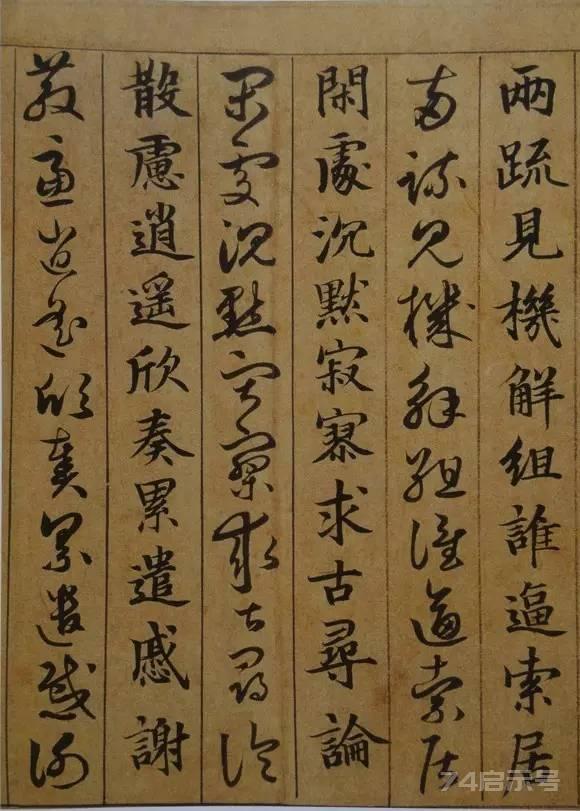 兩疏見機解組誰逼索居
兩疏見機解組誰逼索居
閑處沉默寂寥求古尋論
閑處沉默寂寥求古尋論
散慮逍遥欣奏累遣慼謝
散慮逍遥欣奏累遣慼謝
74启示号